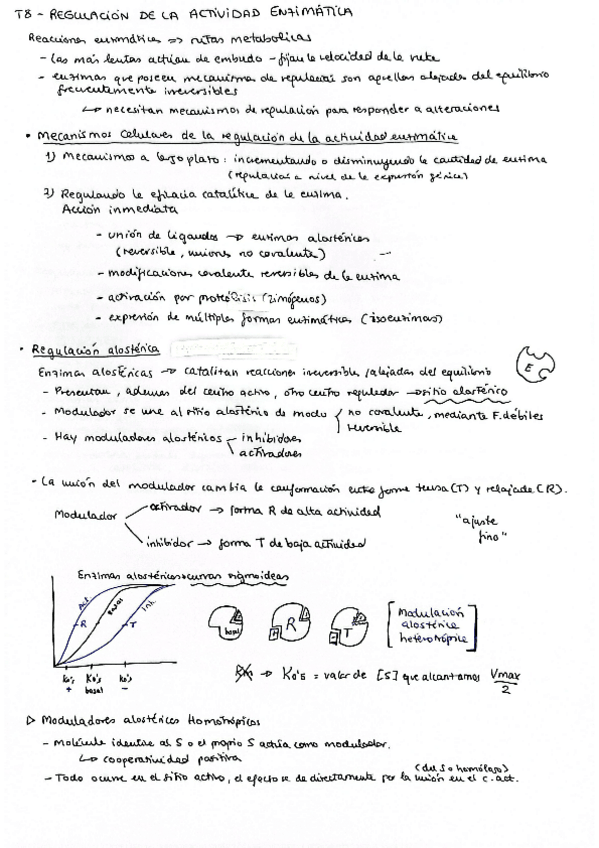 T8 - REGULACIÓN DE LA ACTIVIDAD ENZIMÁTICA
Reacciones enzimáticas => rutas metabolicas
- Las más lentas actúan de embudo - fijan la velocidad de la ruta
- enzimas que poseen mecanismos de regulación son aquellas alejadas del equilibrio
frecuentemente irreversibles
↳ necesitan mecanismos de regulación para responder a alteraciones
• Mecanismos celulares de la regulación de la actividad enzimática
1) Mecanismos a largo plazo: incrementando o disminuyendo la cantidad de enzima
(regulación a nivel de la expresión génica)
2) Regulando la eficacia catalítica de la enzima.
Acción inmediata
- unión de ligandos → enzimas alostéricas
(reversible, uniones no covalente)
- modificaciones covalente reversibles de la enzima
- activación por proteólisis (zimógenos)
- expresión de múltiples formas enzimáticas (isoenzimas)
• Regulación alostérica
Enzimas alostéricas → catalitan reacciones irreversibles/alejadas del equilibrio
E
- Presentan, además del centro activo, otro centro regulador → sitio alostérico
- Modulador se une al sitio alostérico de modo no covalente, mediante F. débiles
reversible
- Hay moduladores alostéricos inhibidores
activadores
- La unión del modulador cambia la conformación entre forma tensa (T) y relajada (R).
Modulador activador → forma R de alta actividad
inhibidor → forma T de baja actividad
"ajuste
fino"
Enzimas alostéricas: curvas sigmoideas
Act. Basal Inh.
R T
basal R T
[Modulación
alostérica
heterotrópica]
K0's + K0's basal K0's -
Km → K0's = valor de [S] que alcanzamos Vmax/2
▷ Moduladores alostéricos Homotrópicos
- Molécula identica al S o el propio S actúa como modulador.
↳ cooperatividad positiva
- Todo ocurre en el sitio activo, el efecto se da directamente por la unión en el c. act.
(del S o homólogo)